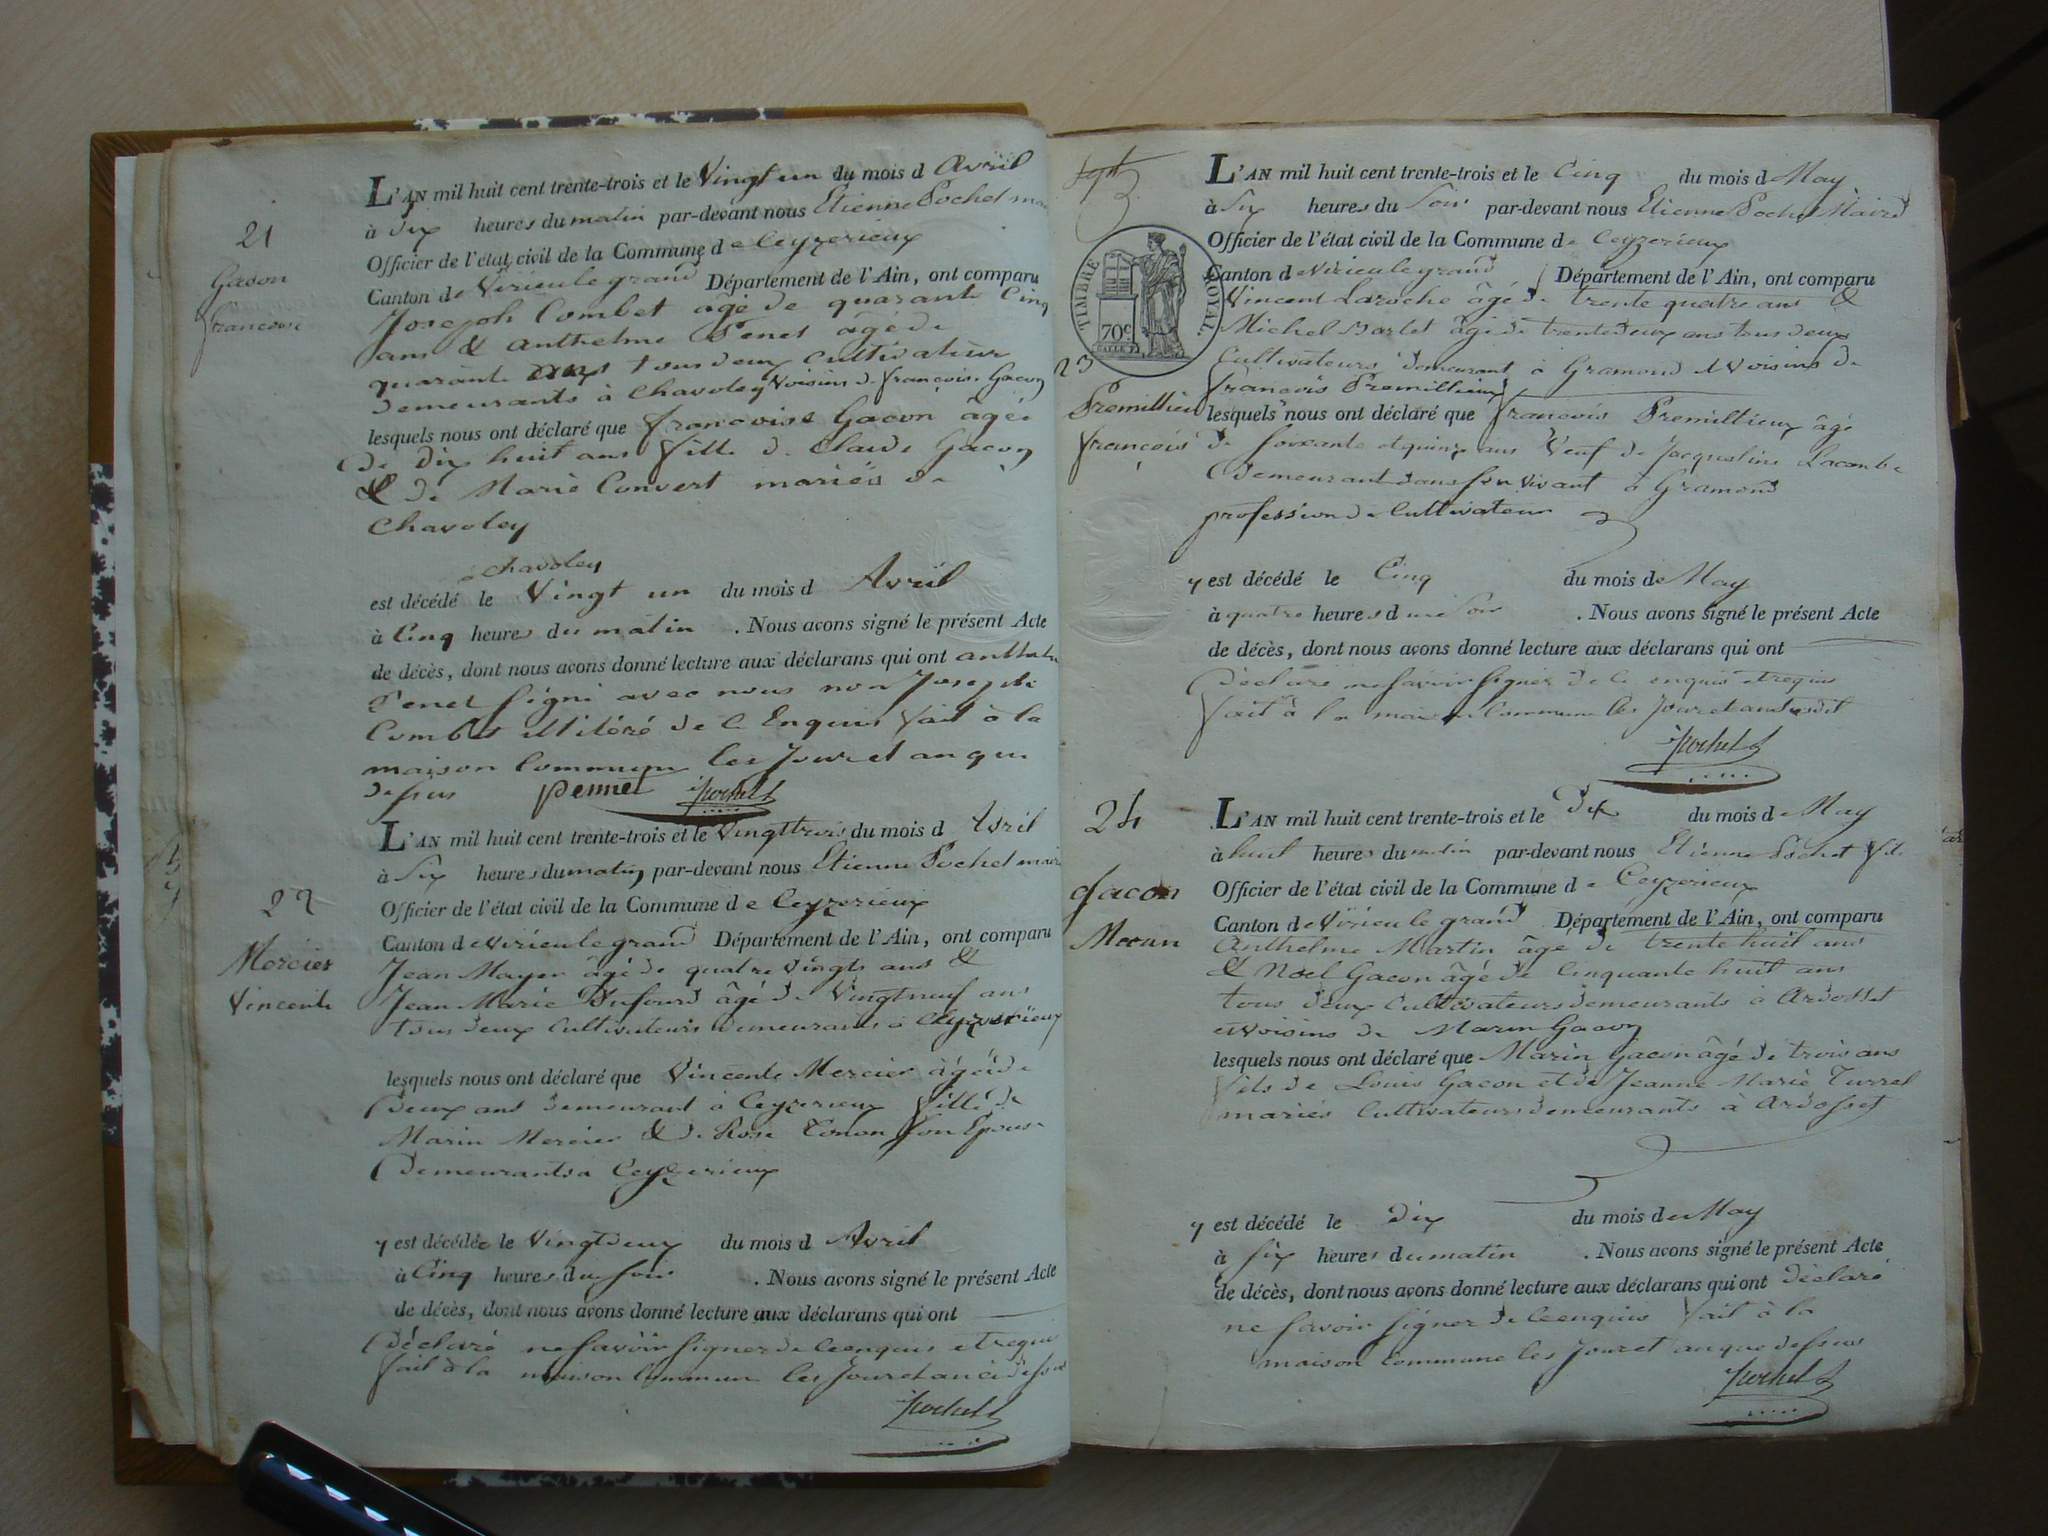 21
Gacon
francoise
L'AN mil huit cent trente-trois et le Vingt un du mois d Avril
à dix heures du matin par-devant nous Etienne Pochet
Officier de l'état civil de la Commune de Ceyzerieux
Canton de Virieu le grand Département de l'Ain, ont comparu
Joseph Combet âgé de quarante Cinq
ans & anthelme Penet âgé de
quarante ans tous deux Cultivateurs
demeurants à Chavoley Voisins de françoise Gacon
lesquels nous ont déclaré que françoise Gacon âgée
de dix huit ans fille de Claude Gacon
& de Marie Convert mariés de
Chavoley
à Chavoley
est décédé le Vingt un du mois d Avril
à Cinq heures du matin . Nous avons signé le présent Acte
de décès, dont nous avons donné lecture aux déclarans qui ont
Penet signé avec nous non Joseph
Combet illitéré de ce Enquis fait à la
maison Commune les Jour et an que
dessus Pennet Pochet
22
Mercier
Vincente
L'AN mil huit cent trente-trois et le Vingt trois du mois d Avril
à Six heures du matin par-devant nous Etienne Pochet maire
Officier de l'état civil de la Commune de Ceyzerieux
Canton de Virieu le grand Département de l'Ain, ont comparu
Jean Mayer âgé de quatre Vingts ans &
Jean Marie Dufourd âgé de Vingt neuf ans
tous deux Cultivateurs demeurants à Ceyzerieux
lesquels nous ont déclaré que Vincente Mercier âgée de
Deux ans demeurant à Ceyzerieux fille de
Marin Mercier & de Rose Tonon son Epouse
Demeurants a Ceyzerieux
y est décédée le Vingt deux du mois d Avril
à Cinq heures du soir . Nous avons signé le présent Acte
de décès, dont nous avons donné lecture aux déclarans qui ont
Déclaré ne savoir signer de ce enquis et requis
fait à la maison Commune les Jour et an ci dessus
Pochet
TIMBRE ROYAL
70c
23
Premillieu
françois
L'AN mil huit cent trente-trois et le Cinq du mois d May
à Six heures du Soir par-devant nous Etienne Pochet Maire
Officier de l'état civil de la Commune de Ceyzerieux
Canton de Virieu le grand Département de l'Ain, ont comparu
Vincent Laroche âgé de trente quatre ans &
Michel Barlet âgé de trente deux ans tous deux
Cultivateurs demeurant à Gramond et Voisins de
françois Premillieux
lesquels nous ont déclaré que françois Premillieux âgé
de soixante et quinze ans Veuf de Jacqueline Lacombe
Demeurant dans son Vivant à Gramond
profession de Cultivateur
y est décédé le Cinq du mois de May
à quatre heures du soir . Nous avons signé le présent Acte
de décès, dont nous avons donné lecture aux déclarans qui ont
Déclaré ne savoir signer de ce enquis et requis
fait à la maison Commune les Jour et an susdit
Pochet
24
Gacon
Marin
L'AN mil huit cent trente-trois et le Dix du mois d May
à huit heures du matin par-devant nous Etienne Pochet
Officier de l'état civil de la Commune de Ceyzerieux
Canton de Virieu le grand Département de l'Ain, ont comparu
Anthelme Martin âgé de trente huit ans
& Noel Gacon âgé de Cinquante huit ans
tous deux Cultivateurs demeurants à Ardosset
et Voisins de Marin Gacon
lesquels nous ont déclaré que Marin Gacon âgé de trois ans
fils de Louis Gacon et de Jeanne Marie Turrel
mariés Cultivateurs demeurants à Ardosset
y est décédé le dix du mois de May
à six heures du matin . Nous avons signé le présent Acte
de décès, dont nous avons donné lecture aux déclarans qui ont déclaré
ne savoir signer de ce enquis fait à la
maison Commune les Jour et an que dessus
Pochet